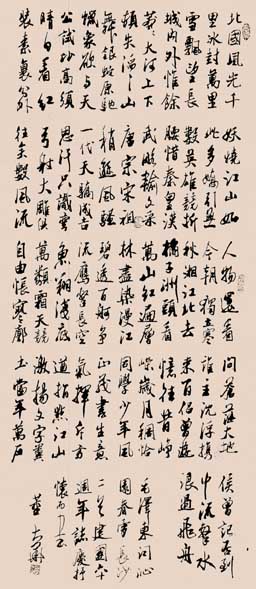 北國風光千
里冰封萬里
雪飄望長
城內外惟餘
莽莽大河上下
頓失滔滔山
舞銀蛇原馳
蠟象欲與天
公試比高須
晴日看紅
裝素裹分外
妖嬈江山如
此多嬌引無
數英雄競折
腰惜秦皇漢
武略輸文采
唐宗宋祖
稍遜風騷
一代天驕成吉
思汗只識彎
弓射大雕俱
往矣數風流
人物還看
今朝獨立寒
秋湘江北去
橘子洲頭看
萬山紅遍層
林盡染漫江
碧透百舸爭
流鷹擊長空
魚翔淺底
萬類霜天競
自由悵寥廓
問蒼茫大地
誰主沉浮携
來百侶曾遊
憶往昔崢
嶸歲月稠恰
同學少年風
華正茂書生意
氣揮斥方
遒指點江山
激揚文字糞
土當年萬戶
侯曾記否到
中流擊水
浪遏飛舟
毛澤東詞沁
園春雪長沙
建國六十
週年誌慶抒
懷